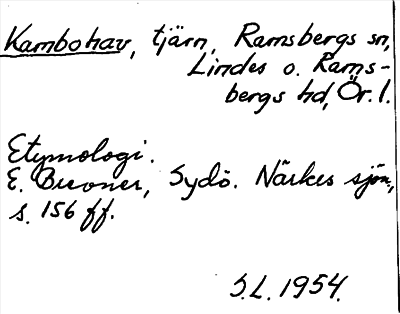 Kambohav, tjärn, Ramsbergs sn,
Lindes o. Rams-
bergs hd, Ör. l.
Etymologi.
E. Brevner, Sydö. Närkes sjön.,
s. 156 ff.
S.L. 1954.